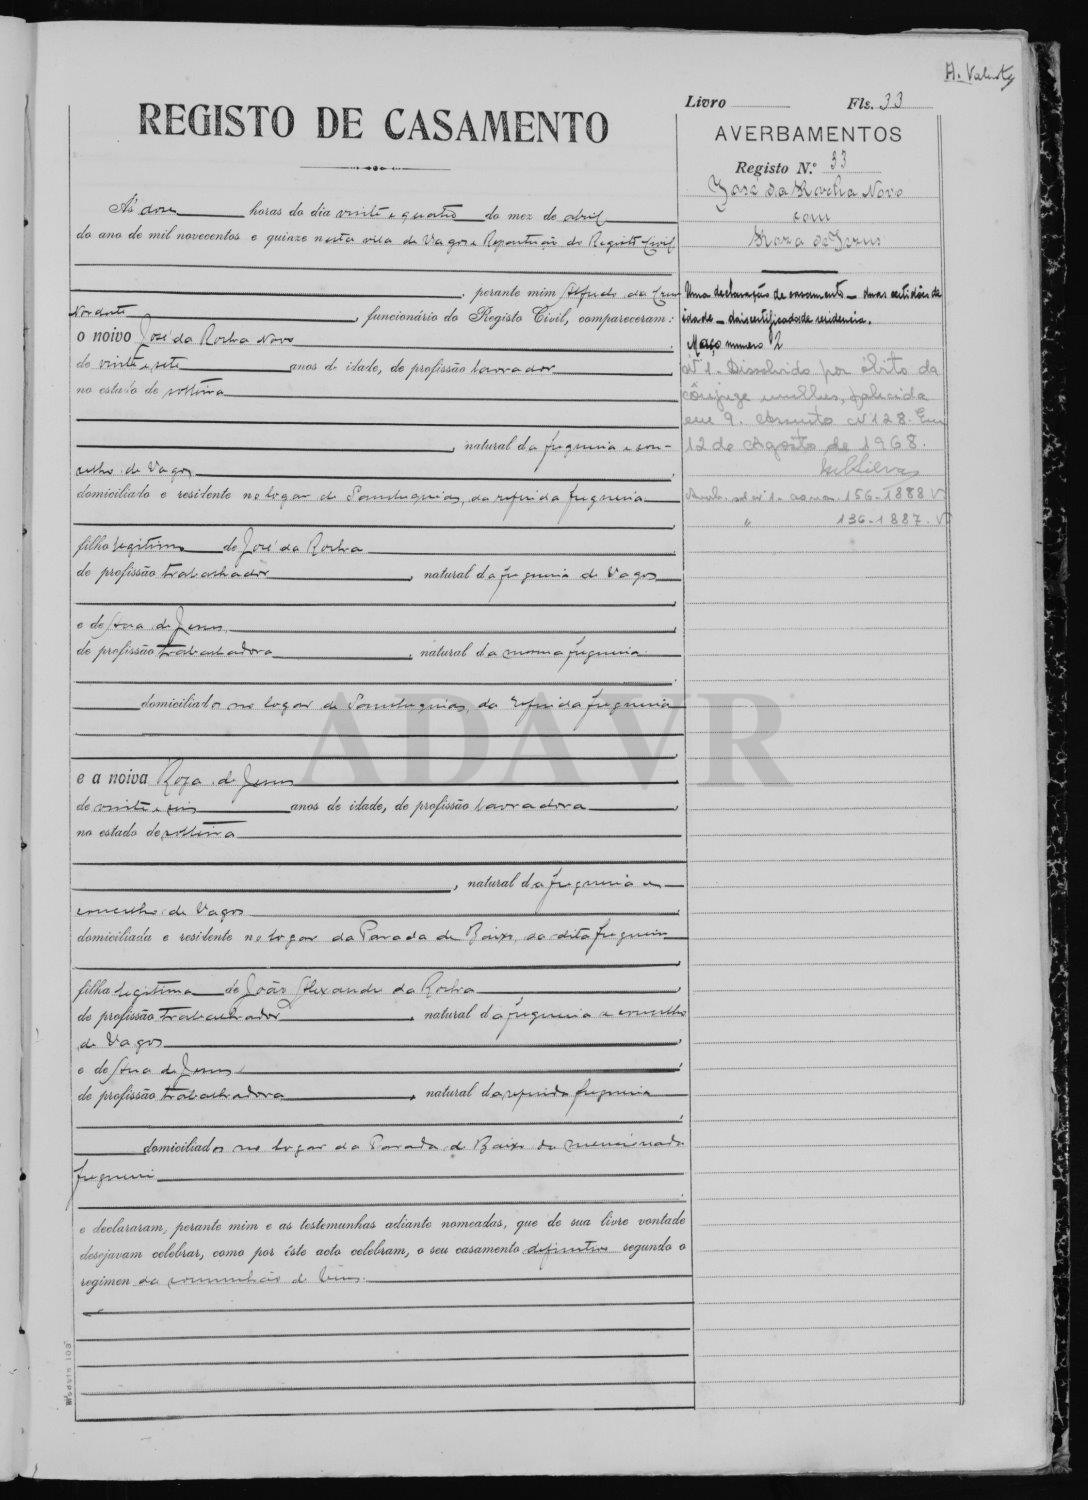 A. Valente
Livro Fls. 33
REGISTO DE CASAMENTO
AVERBAMENTOS
Registo N.º 33
José da Rocha Novo
com
Roza de Jesus
Uma declaração de casamento - duas certidões de
idade - dois certificados de residencia.
Maço numero 2
N.º 1 - Dissolvido por óbito da
cônjuge mulher, falecida
em 9. Assento N 128. Em
12 de Agosto de 1968.
Silva
156-1888 V
" 136-1887. V
Ás doze horas do dia vinte e quatro do mez de abril
do ano de mil novecentos e quinze nesta vila de Vagos e Repartição do Registo Civil
, perante mim Alfredo da Cruz
, funcionário do Registo Civil, compareceram:
o noivo José da Rocha Novo
de vinte e sete anos de idade, de profissão lavrador
no estado de solteiro
, natural da freguesia e con-
celho de Vagos
domiciliado e residente no logar de da referida freguesia
filho legitimo de José da Rocha
de profissão trabalhador, natural da freguesia de Vagos
e de Ana de Jesus
de profissão trabalhadora, natural da mesma freguesia
domiciliados no logar de da referida freguesia
ADAVR
e a noiva Roza de Jesus
de vinte e seis anos de idade, de profissão lavradora
no estado de solteira
, natural da freguesia e
concelho de Vagos
domiciliada e residente no logar da Parada de Baixo, da dita freguesia
filha legitima de João Alexandre da Rocha
de profissão trabalhador, natural da freguesia e concelho
de Vagos
e de Ana de Jesus
de profissão trabalhadora, natural da referida freguesia
domiciliados no logar da Parada de Baixo da mencionada
freguesia
e declararam, perante mim e as testemunhas adiante nomeadas, que de sua livre vontade
desejavam celebrar, como por êste acto celebram, o seu casamento definitivo segundo o
regimen da comunhão de bens.
Modelo 103